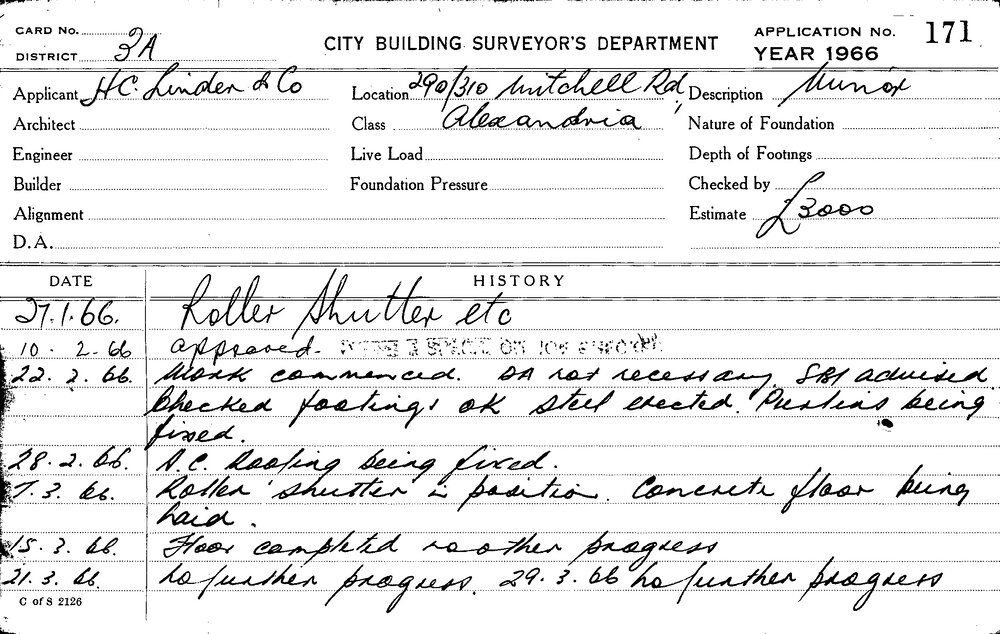 CARD No.
DISTRICT 3A
CITY BUILDING SURVEYOR'S DEPARTMENT
APPLICATION No. 171
YEAR 1966
Applicant H.C. Linden & Co
Location 290/310 Mitchell Rd,
Description Minor
Architect
Class Alexandria
Nature of Foundation
Engineer
Live Load
Depth of Footings
Builder
Foundation Pressure
Checked by
Alignment
Estimate £3000
D.A.
DATE
HISTORY
27.1.66. Roller Shutter etc
10.2.66 approved.
22.2.66. Work commenced. DA not necessary. SBI advised.
Checked footings ok steel erected. Purlins being
fixed.
28.2.66. A.C. Roofing being fixed.
7.3.66. Roller shutter in position. Concrete floor being
laid.
15.3.66. Floor completed no other progress
21.3.66. no further progress. 29.3.66 no further progress
C of S 2126